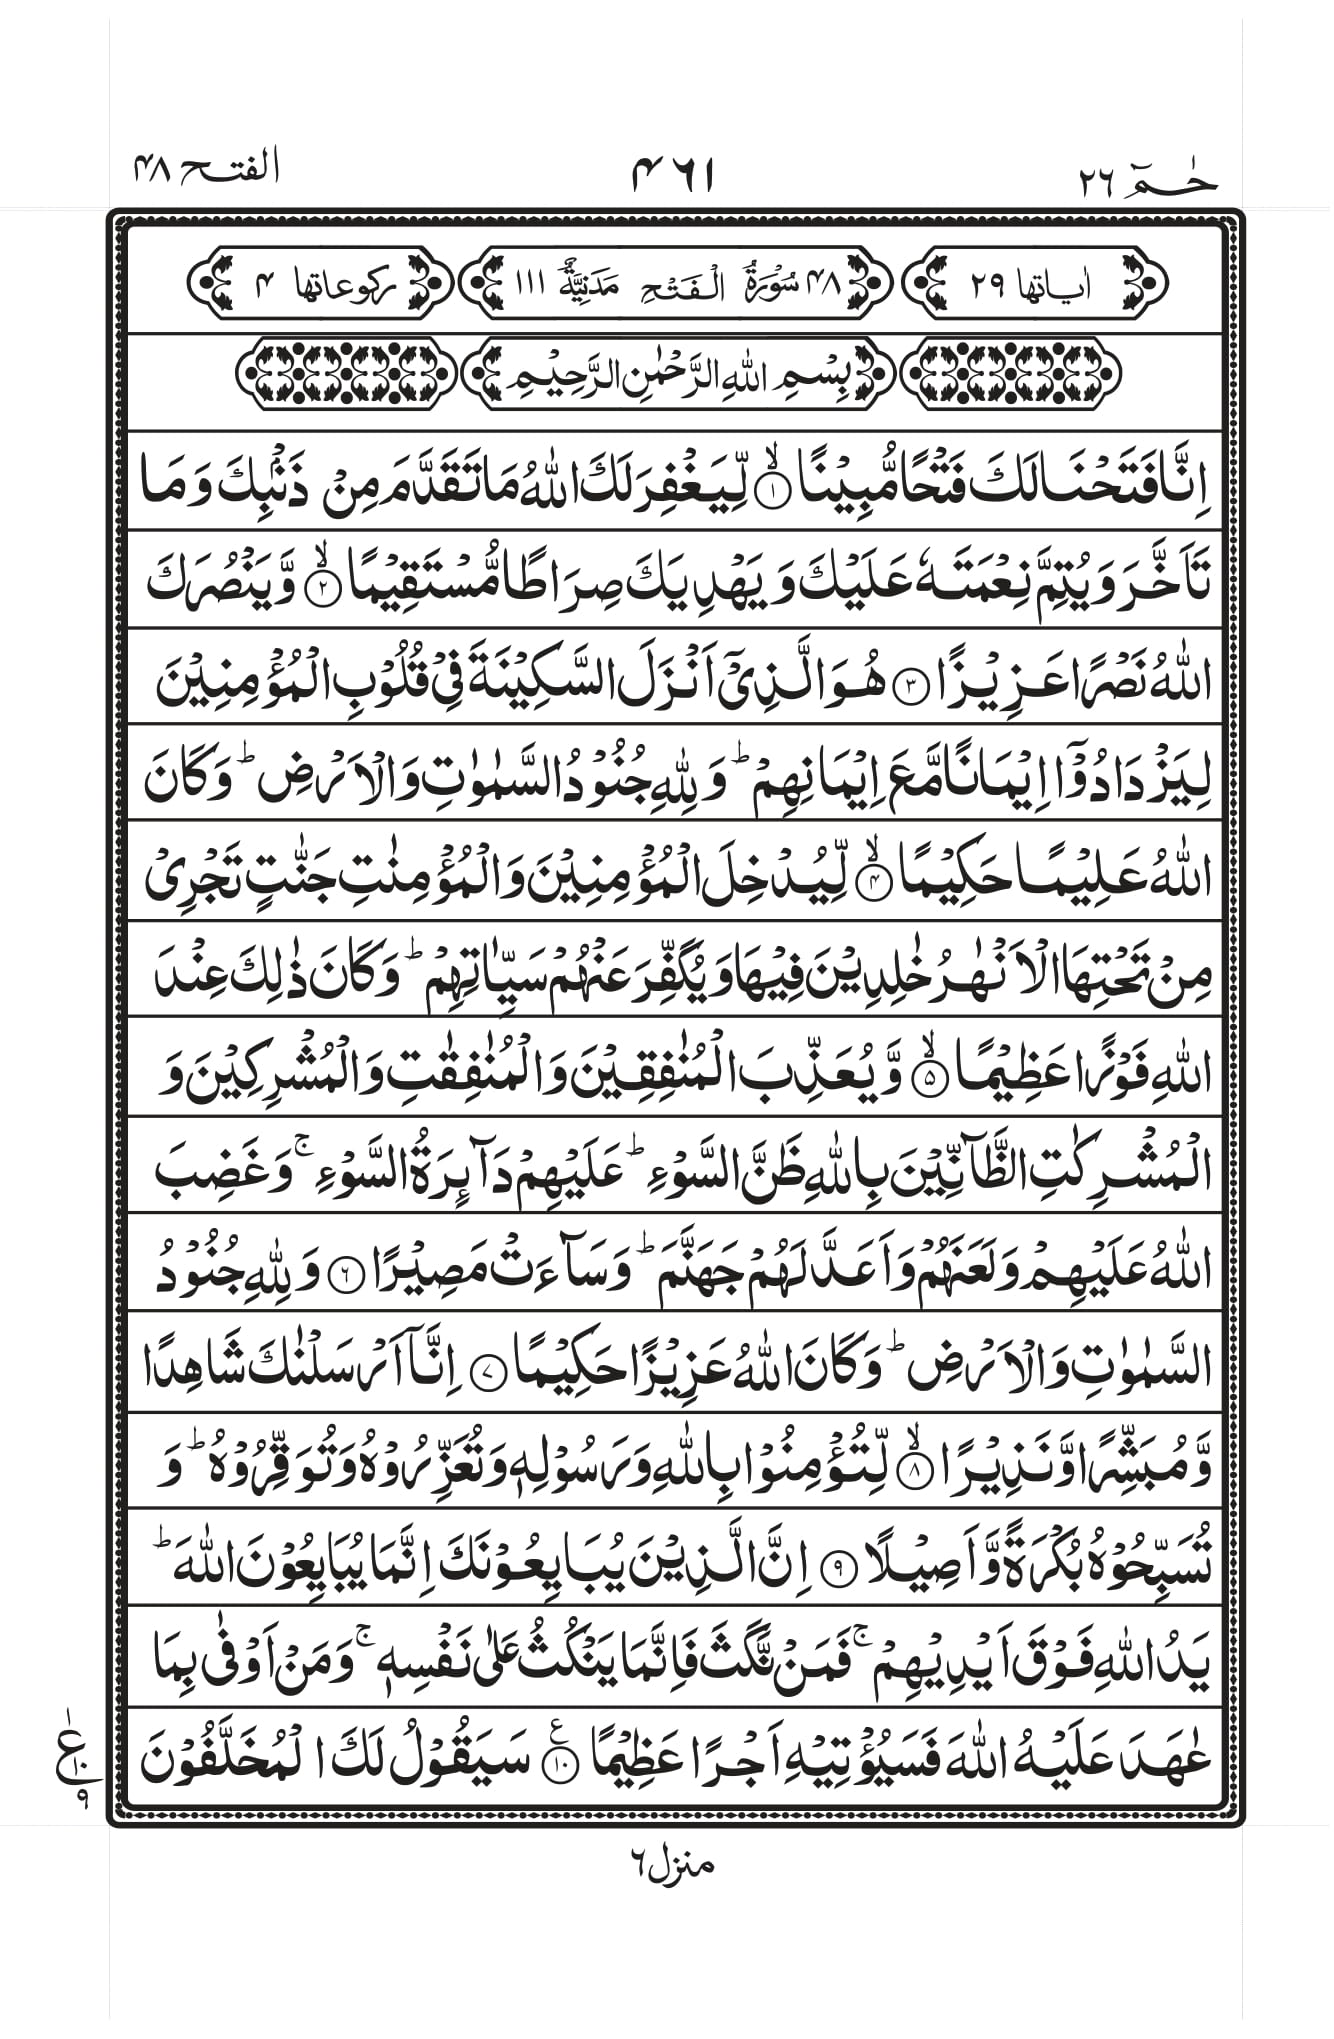 حٰمٓ ۲۶
۴۶۱
الفتح ۴۸
اٰیاتها ۲۹
۴۸ سُوْرَةُ الْفَتْحِ مَدَنِیَّةٌ ۱۱۱
رکوعاتها ۴
بِسْمِ اللهِ الرَّحْمٰنِ الرَّحِیْمِ
اِنَّا فَتَحْنَا لَكَ فَتْحًا مُّبِیْنًا ۙ﴿۱﴾ لِّیَغْفِرَ لَكَ اللهُ مَا تَقَدَّمَ مِنْ ذَنْۢبِكَ وَ مَا
تَاَخَّرَ وَ یُتِمَّ نِعْمَتَهٗ عَلَیْكَ وَ یَهْدِیَكَ صِرَاطًا مُّسْتَقِیْمًا ۙ﴿۲﴾ وَّ یَنْصُرَكَ
اللهُ نَصْرًا عَزِیْزًا ﴿۳﴾ هُوَ الَّذِیْۤ اَنْزَلَ السَّكِیْنَةَ فِیْ قُلُوْبِ الْمُؤْمِنِیْنَ
لِیَزْدَادُوْۤا اِیْمَانًا مَّعَ اِیْمَانِهِمْ ؕ وَ لِلّٰهِ جُنُوْدُ السَّمٰوٰتِ وَ الْاَرْضِ ؕ وَ كَانَ
اللهُ عَلِیْمًا حَكِیْمًا ۙ﴿۴﴾ لِّیُدْخِلَ الْمُؤْمِنِیْنَ وَ الْمُؤْمِنٰتِ جَنّٰتٍ تَجْرِیْ
مِنْ تَحْتِهَا الْاَنْهٰرُ خٰلِدِیْنَ فِیْهَا وَ یُكَفِّرَ عَنْهُمْ سَیِّاٰتِهِمْ ؕ وَ كَانَ ذٰلِكَ عِنْدَ
اللهِ فَوْزًا عَظِیْمًا ۙ﴿۵﴾ وَّ یُعَذِّبَ الْمُنٰفِقِیْنَ وَ الْمُنٰفِقٰتِ وَ الْمُشْرِكِیْنَ وَ
الْمُشْرِكٰتِ الظَّآنِّیْنَ بِاللهِ ظَنَّ السَّوْءِ ؕ عَلَیْهِمْ دَآىِٕرَةُ السَّوْءِ ۚ وَ غَضِبَ
اللهُ عَلَیْهِمْ وَ لَعَنَهُمْ وَ اَعَدَّ لَهُمْ جَهَنَّمَ ؕ وَ سَآءَتْ مَصِیْرًا ﴿۶﴾ وَ لِلّٰهِ جُنُوْدُ
السَّمٰوٰتِ وَ الْاَرْضِ ؕ وَ كَانَ اللهُ عَزِیْزًا حَكِیْمًا ﴿۷﴾ اِنَّاۤ اَرْسَلْنٰكَ شَاهِدًا
وَّ مُبَشِّرًا وَّ نَذِیْرًا ۙ﴿۸﴾ لِّتُؤْمِنُوْا بِاللهِ وَ رَسُوْلِهٖ وَ تُعَزِّرُوْهُ وَ تُوَقِّرُوْهُ ؕ وَ
تُسَبِّحُوْهُ بُكْرَةً وَّ اَصِیْلًا ﴿۹﴾ اِنَّ الَّذِیْنَ یُبَایِعُوْنَكَ اِنَّمَا یُبَایِعُوْنَ اللهَ ؕ
یَدُ اللهِ فَوْقَ اَیْدِیْهِمْ ۚ فَمَنْ نَّكَثَ فَاِنَّمَا یَنْكُثُ عَلٰى نَفْسِهٖ ۚ وَ مَنْ اَوْفٰى بِمَا
عٰهَدَ عَلَیْهُ اللهَ فَسَیُؤْتِیْهِ اَجْرًا عَظِیْمًا ﴿۱۰﴾ ع سَیَقُوْلُ لَكَ الْمُخَلَّفُوْنَ
۱
ع
۱۰
۹
منزل ۶